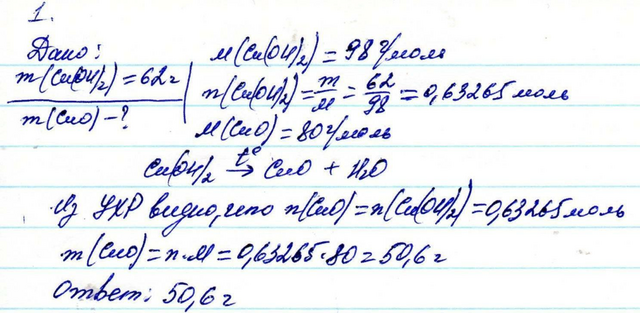 1.
Дано:
m(Cu(OH)₂) = 62 г
m(CuO) – ?
M(Cu(OH)₂) = 98 г/моль
n(Cu(OH)₂) = m/M = 62/98 = 0,63265 моль
M(CuO) = 80 г/моль
Cu(OH)₂ t°→ CuO + H₂O
Из УХР видно, что n(CuO) = n(Cu(OH)₂) = 0,63265 моль
m(CuO) = n·M = 0,63265·80 = 50,6 г
Ответ: 50,6 г